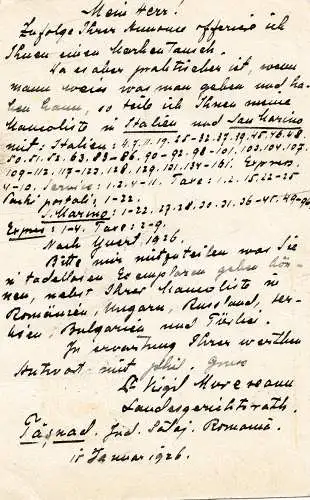 Mein Herr!
Zufolge Ihrer Annonce offeriere ich
Ihnen einen Marken Tausch.
Da es aber praktischer ist, wenn
mann weiss was man geben und ha-
ben kann, so teile ich Ihnen meine
Mancoliste in Italien und San Marino
mit: Italien: 4. 7. 11. 19. 25-32. 37. 39. 45. 46. 48.
50. 51. 52. 63. 83-86. 90-92. 98-101. 103. 104. 107.
109-112. 117-123. 128. 129. 131. 134-161. Expres.
4-10. Service: 1. 2. 4-11. Taxe: 1. 2. 15. 22-25
Pachi postali: 1-22.
S. Marino: 1-22. 27. 28. 30. 31. 36-45. 49-96
Expres: 1-4. Taxe: 2-9.
Nach Yvert 1926.
Bitte mir mitzuteilen was Sie
in tadellosen Exemplaren geben kön-
nen, nebst Ihrer Mancoliste in
Romänien, Ungarn, Russland, Ser-
bien, Bulgarien und Türkei.
In erwartung Ihrer werthen
Antwort mit phil. Gruss
Dr Vigil
Landesgerichtsrath.
Tăşnad. Jud. Sălaj. Romania.
15 Januar 1926.